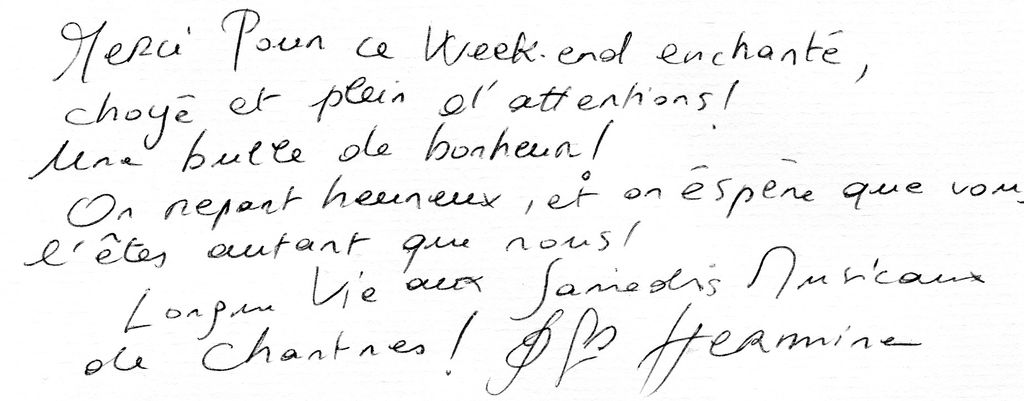 Merci Pour ce Week-end enchanté,
choyé et plein d'attentions!
Une bulle de bonheur!
On repart heureux, et on éspère que vous
l'êtes autant que nous!
Longue Vie aux Samedis Musicaux
de Chartres! Hermine